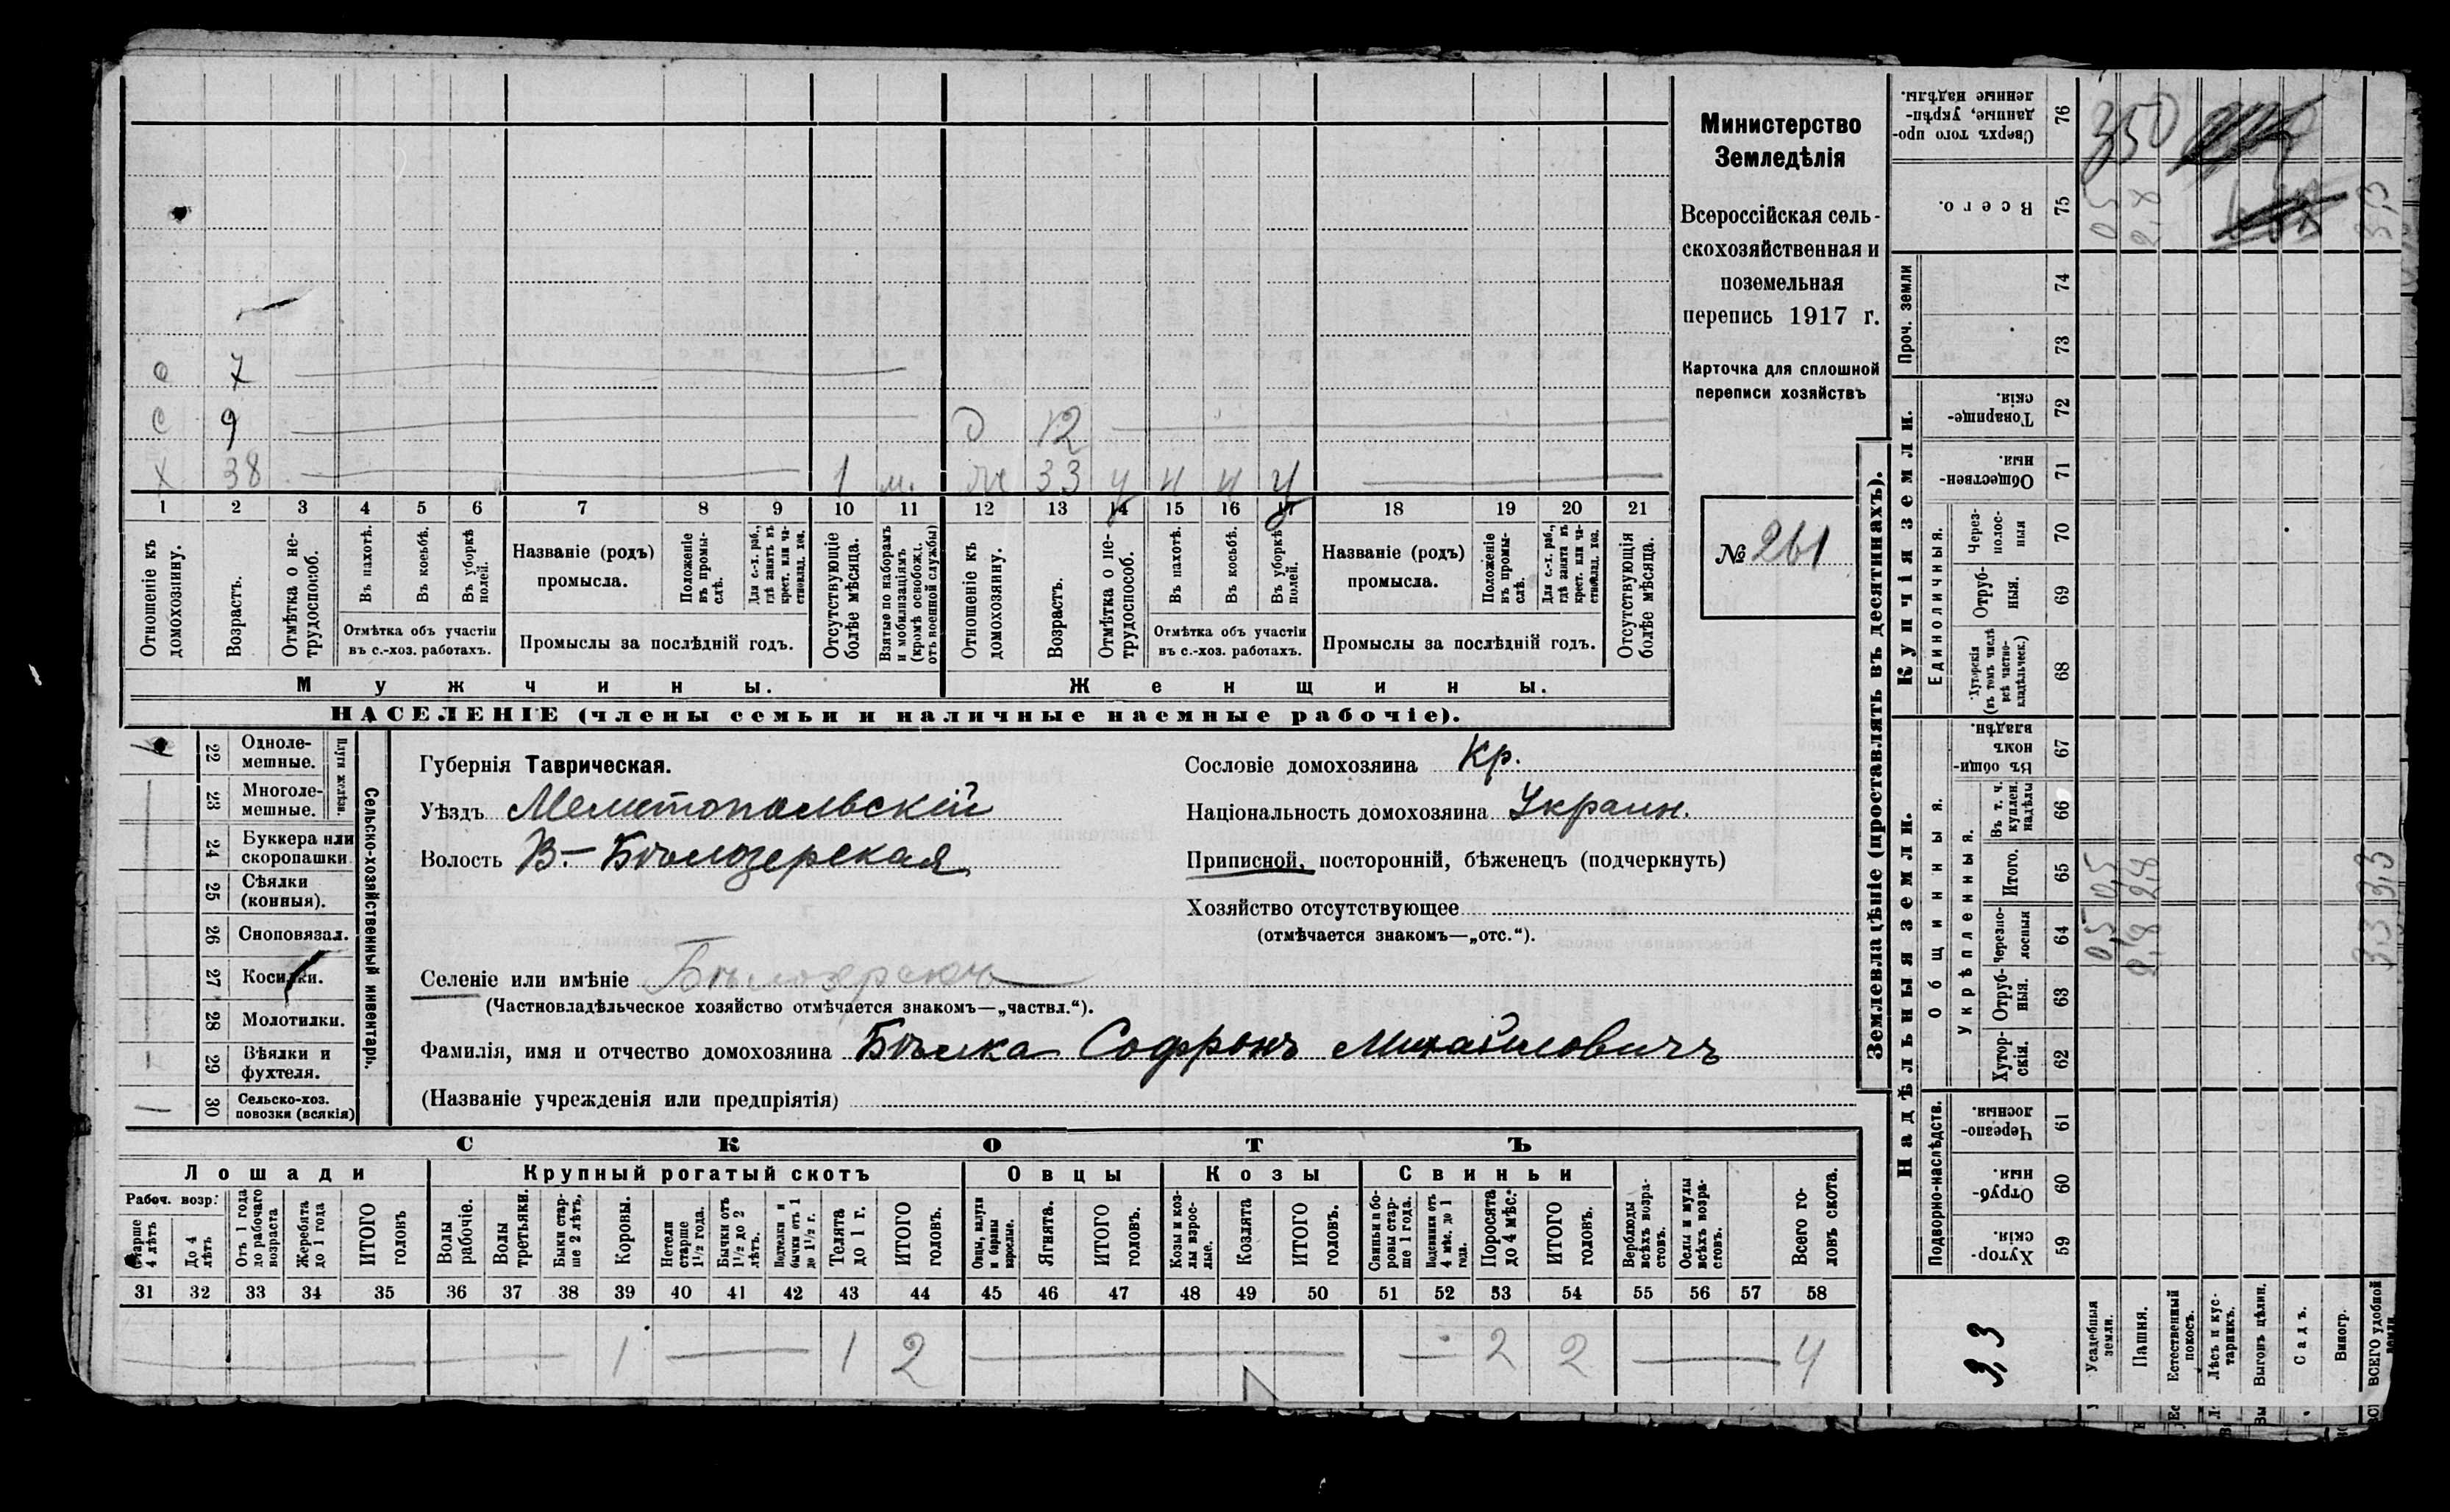 Министерство
Земледѣлія
Всероссійская сель-
скохозяйственная и
поземельная
перепись 1917 г.
Карточка для сплошной
переписи хозяйствъ
№ 261
с 7
с 9 д 12
х 38 1 м. ж 33 у н н у
1 2 3 4 5 6 7 8 9 10 11 12 13 14 15 16 17 18 19 20 21
Отношеніе къ домохозяину.
Возрастъ.
Отмѣтка о не-трудоспособ.
Въ пахотѣ.
Въ косьбѣ.
Въ уборкѣ полей.
Отмѣтка объ участіи
въ с.-хоз. работахъ.
Названіе (родъ)
промысла.
Положеніе въ промы-слѣ.
Для с.-х. раб., гдѣ занятъ въ крест. или ча-стновлад. хоз.
Промыслы за послѣдній годъ.
Отсутствующіе болѣе мѣсяца.
Взятые по наборамъ и мобилизаціямъ (кромѣ освобожд. отъ военной службы)
Отношеніе къ домохозяину.
Возрастъ.
Отмѣтка о не-трудоспособ.
Въ пахотѣ.
Въ косьбѣ.
Въ уборкѣ полей.
Отмѣтка объ участіи
въ с.-хоз. работахъ.
Названіе (родъ)
промысла.
Положеніе въ промы-слѣ.
Для с.-х. раб., гдѣ занята въ крест. или ча-стновлад. хоз.
Промыслы за послѣдній годъ.
Отсутствующія болѣе мѣсяца.
Мужчины. Женщины.
НАСЕЛЕНІЕ (члены семьи и наличные наемные рабочіе).
Сельско-хозяйственный инвентарь.
Плуги желѣзн.
22 Одноле-мешные.
23 Многоле-мешные.
24 Буккера или скоропашки
25 Сѣялки (конныя).
26 Сноповязал.
27 Косилки.
28 Молотилки.
29 Вѣялки и фухтеля.
30 Сельско-хоз. повозки (всякія)
Губернія Таврическая.
Уѣздъ Мелитопольскій
Волость В-Бѣлозерская
Сословіе домохозяина Кр.
Національность домохозяина Украин.
Приписной, посторонній, бѣженецъ (подчеркнуть)
Хозяйство отсутствующее
(отмѣчается знакомъ—„отс.“).
Селеніе или имѣніе Бѣлозерскъ
(Частновладѣльческое хозяйство отмѣчается знакомъ—„частвл.“).
Фамилія, имя и отчество домохозяина Бѣлка Софронъ Михайловичъ
(Названіе учрежденія или предпріятія)
СКОТЪ
Лошади Крупный рогатый скотъ Овцы Козы Свиньи
Рабоч. возр:
Старше 4 лѣтъ
До 4 лѣтъ
Отъ 1 года до рабочаго возраста
Жеребята до 1 года
ИТОГО головъ
Волы рабочіе.
Волы третьяки.
Быки стар-ше 2 лѣтъ.
Коровы.
Нетели старше 1½ года.
Бычки отъ 1½ до 2 лѣтъ.
Подтелки и бычки отъ 1 до 1½ г.
Телята до 1 г.
ИТОГО головъ.
Овцы, валухи и бараны взрослые.
Ягнята.
ИТОГО головъ.
Козы и коз-лы взрос-лые.
Козлята
ИТОГО головъ.
Свиньи и бо-ровы стар-ше 1 года.
Подсвинки отъ 4 мѣс. до 1 года.
Поросята до 4 мѣс.
ИТОГО головъ.
Верблюды всѣхъ возра-стовъ.
Ослы и мулы всѣхъ возра-стовъ.
Всего го-ловъ скота.
31 32 33 34 35 36 37 38 39 40 41 42 43 44 45 46 47 48 49 50 51 52 53 54 55 56 57 58
1 1 2 2 2 4
Землевладѣніе (проставлять въ десятинахъ).
Надѣльныя земли.
Купчія земли.
Проч. земли
Подворно-наслѣдств.
Общинныя.
Укрѣпленныя.
Единоличныя.
59 Хутор-скія.
60 Отруб-ныя.
61 Черезпо-лосныя.
62 Хутор-скія.
63 Отруб-ныя.
64 Черезпо-лосныя
65 Итого.
66 Въ т. ч. куплен. надѣлы
67 Въ общи-номъ владѣн.
68 Хуторскія (въ томъ числѣ всѣ частно-владѣльческ.)
69 Отруб-ныя.
70 Через-полос-ныя
71 Обществен-ныя.
72 Товарище-скія.
73
74
75 Всего.
76 Сверхъ того про-данные, укрѣп-ленные надѣлы.
3,3
Усадебныя земли. 0,5 0,5 0,5
Пашня. 2,8 2,8 2,8
Естественный покосъ.
Лѣсъ и кус-тарникъ.
Выгонъ цѣлин.
Садъ.
Виногр.
ВСЕГО удобной земли. 3,3 3,3 3,3
350